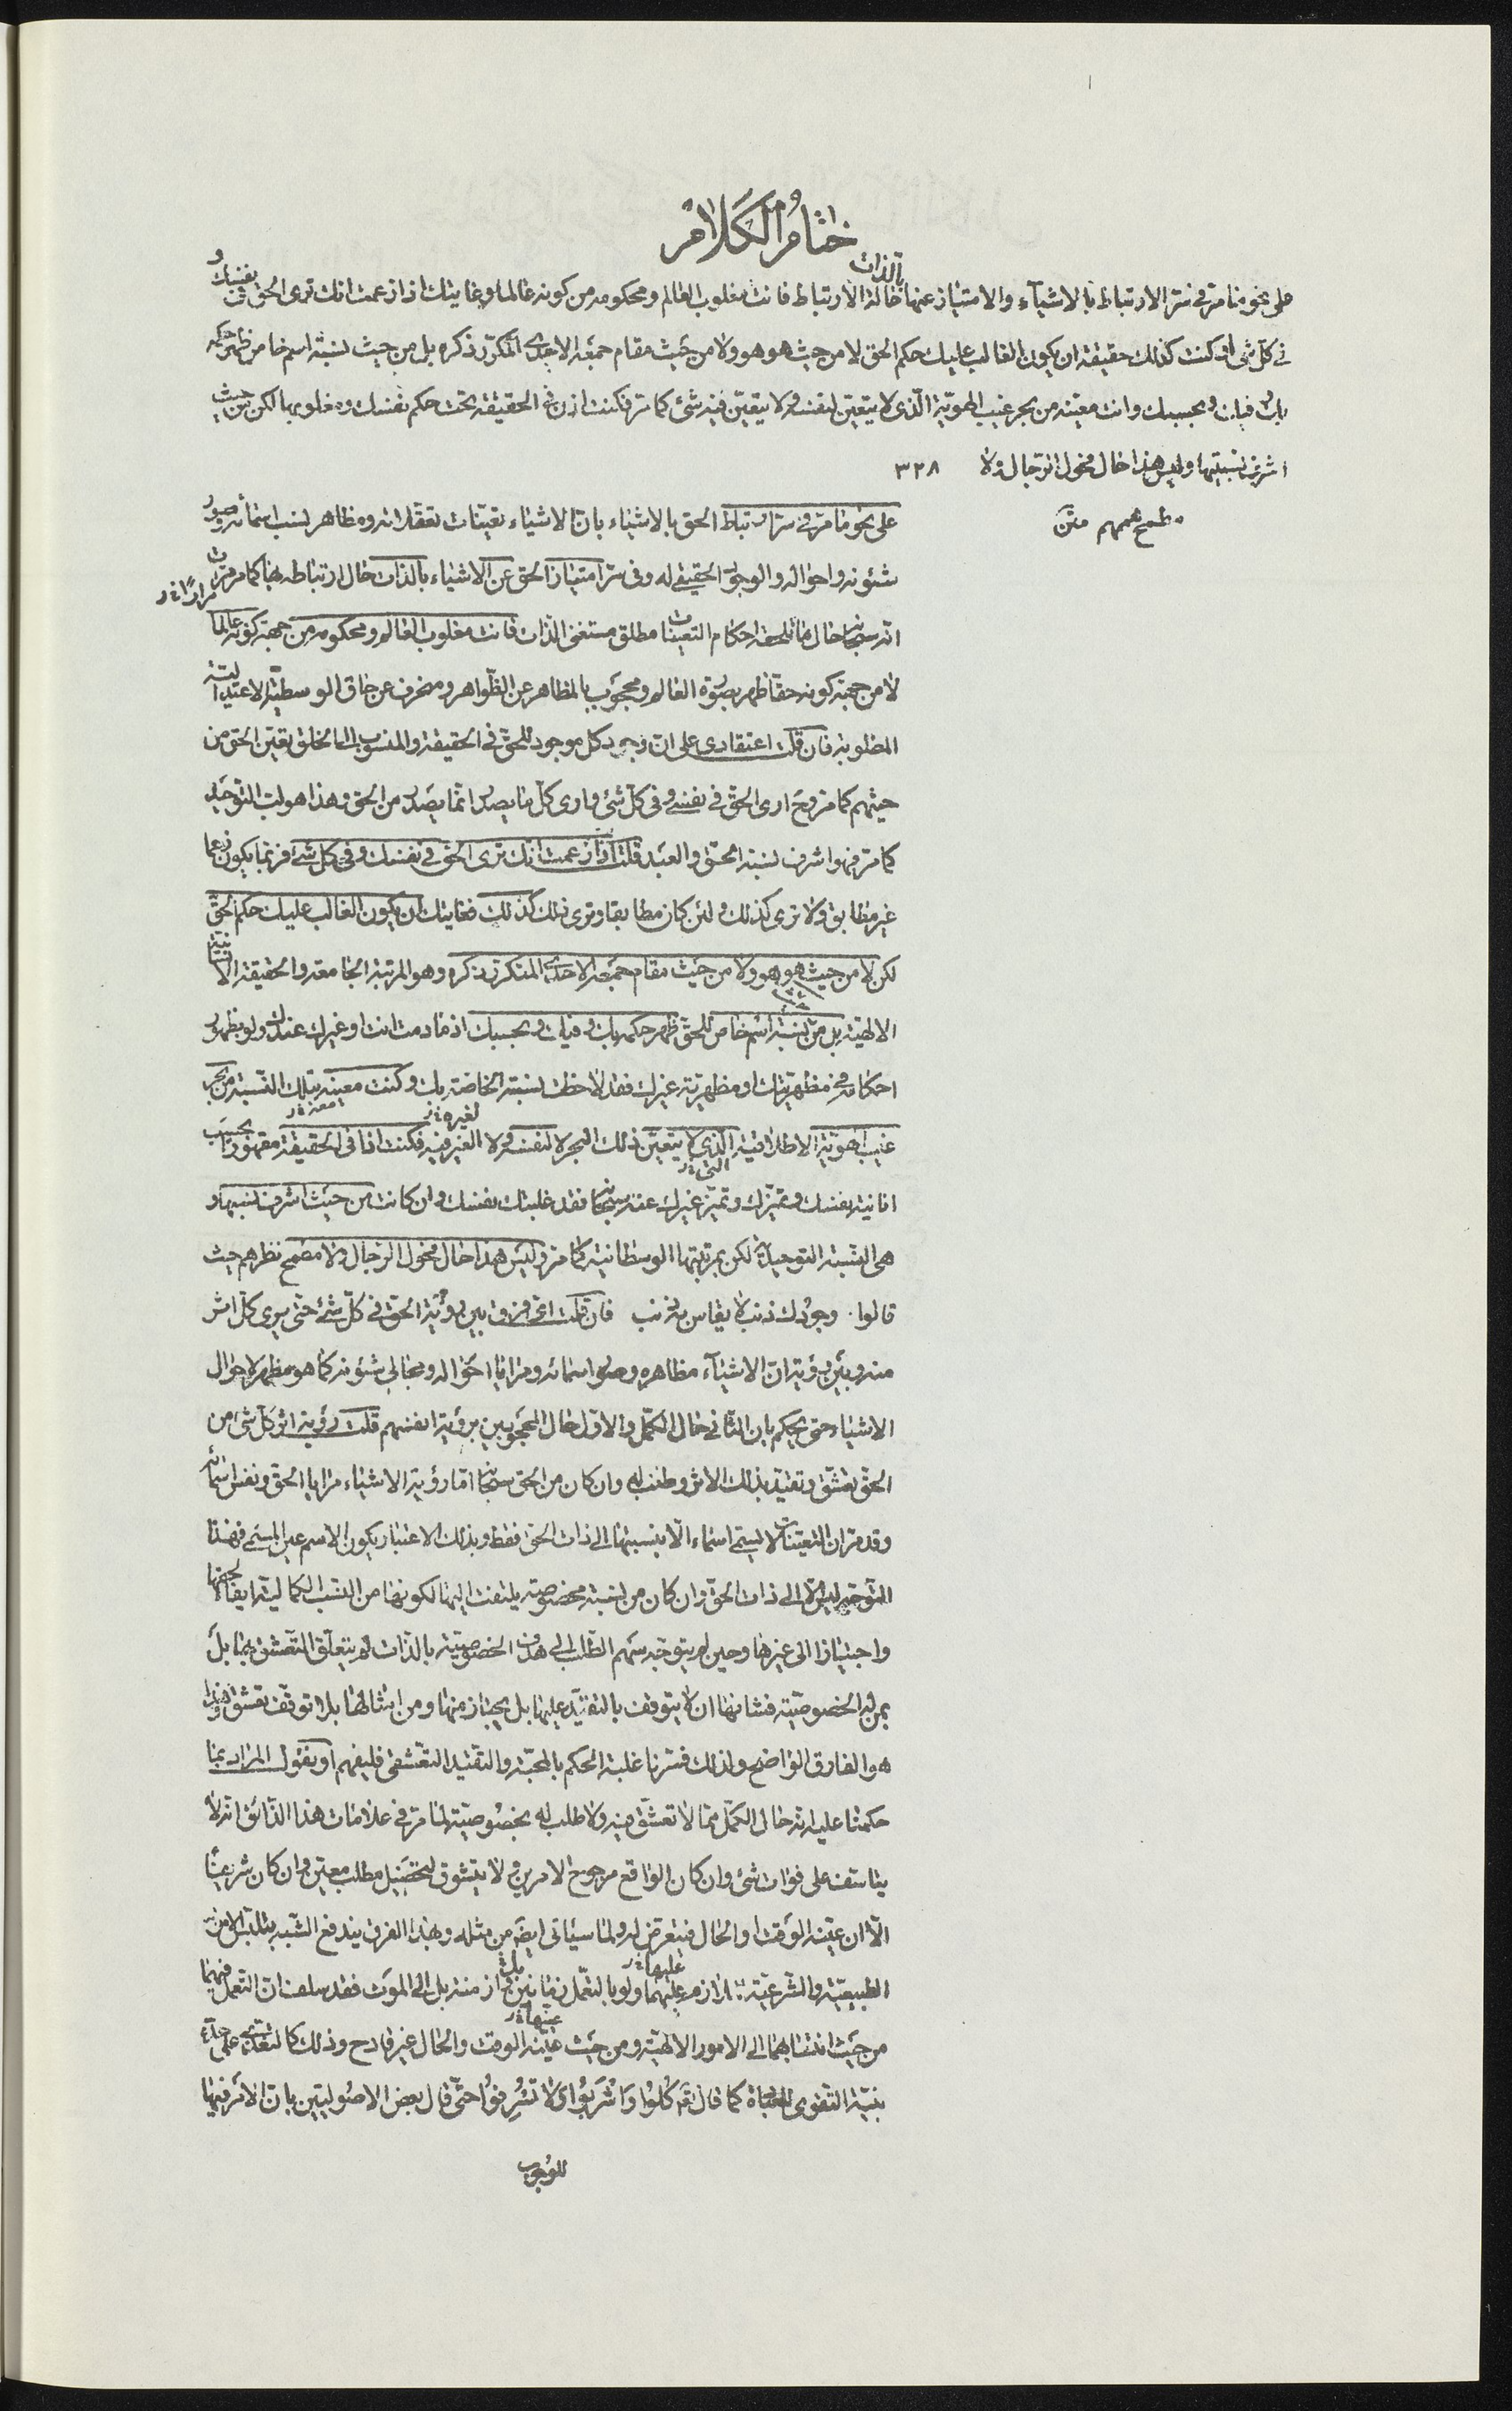 ختام الكلام
على نحو ما مرّ في سرّ الارتباط بالاشياء والامتياز عنها بالذات حالة الارتباط فانت مغلوب العالم ومحكومه من كونه عالما وغايتك اذا زعمت انك ترى الحق في نفسك و
في كل شئ او كنت كذلك حقيقة ان يكون الغالب عليك حكم الحق لا من حيث هو هو ولا من حيث مقام جمعه الاحدى المتكرر ذكره بل من حيث نسبة اسم خاص ظهر حكمه
بك وفيك وبحسبك وانت معينه من بحر غيب الهوية الّذى لا يتعيّن لنفسه ولا يتعيّن فيه شئ كما مر فكنت اذن في الحقيقة تحت حكم نفسك ومغلوبها لكن من حيث
اشرف نسبتيها وليس هذا حال فحول الرّجال ولا ٣٢٨
مطمح هممهم متن
على نحو ما مرّ في سرّ ارتباط الحق بالاشياء بانّ الاشياء تعيّنات تعقلاته ومظاهر نسب اسمائه وصور
شئونه واحواله والوجود الحقيقي له وفى سرّ امتياز الحق عن الاشياء بالذات حال ارتباطه بها كما مر مرات
مرارا خ ر
انّه سبحانه حال ما تلحقه احكام التعينات مطلق مستغنى الذات فانت مغلوب العالم ومحكومه من جهة كونه عالما
لا من جهة كونه حقا ظهر بصورة العالم ومحجوب بالمظاهر عن الظّواهر ومنحرف عن حاق الوسطيّة الاعتدالية
المطلوبة فان قلت اعتقادى على انّ وجود كل موجود للحق في الحقيقة والمنسوب الى الخلق تعيّن الحق من
حيثهم كما مر وح ارى الحق في نفسى وفى كل شئ وارى كل ما يصدر انما يصدر من الحق وهذا هو لب التوحيد
كما مر فهو اشرف نسبة الحق والعبد قلت اذا زعمت انك ترى الحق في نفسك وفي كل شئ فربما يكون زعما
غير مطابق ولا ترى كذلك ولئن كان مطابقا وترى ذلك كذلك فغايتك ان يكون الغالب عليك حكم الحق
لكن لا من حيث هو هو ولا من حيث مقام جمعه الاحدى المتكرر ذكره وهو المرتبة الجامعة والحقيقة الانسانية
الالهيّة بل من نسبة اسم خاص للحق ظهر حكمه بك وفيك وبحسبك اذ ما دمت انت او غيرك عندك ولو بظهور
احكامه في مظهريتك او مظهرية غيرك فقد لاحظت نسبته الخاصة بك وكنت معينه بتلك النسبة من بحر
غيب الهويّة الاطلاقية الّذى لا يتعيّن ذلك البحر لا لنفسه ولا الغير فيه فكنت اذا فى الحقيقة مقهورا بحسب
انانية نفسك وتميّزك وتميّز غيرك عنه سبحانه فقد غلبتك نفسك وان كانت من حيث اشرف نسبتيها و
هى النسبة التوحيدية لكن بمرتبتها الوسطانية كما مر وليس هذا حال فحول الرجال ولا مطمح نظرهم حيث
قالوا وجودك ذنب لا يقاس به ذنب فان قلت اى فرق بين رؤية الحق في كل شئ حتى يرى كل اثر
منه وبين رؤية انّ الاشياء مظاهره وصور اسمائه ومرايا احواله ومجالى شئونه كما هو مظهر لاحوال
الاشياء حتى يحكم بان الثانى حال الكمّل والاول حال المحجوبين برؤية انفسهم قلت رؤية اثر كل شئ من
الحق تعشّق وتقيّد بذلك الاثر وطلب له وان كان من الحق سبحانه امّا رؤية الاشياء مرايا الحق ونفس اسمائه
وقد مر ان التعينات لا يسمّى اسماء الّا بنسبتها الى ذات الحق فقط وبذلك الاعتبار يكون الاسم عين المسمى فهذا
التوجّه ليس الّا الى ذات الحق وان كان من نسبة مخصوصة يلتفت اليها لكونها من النسب الكمالية ايفاء لحقها
واجتيازا الى غيرها وحين لم يتوجّه سهم الطلب الى هدف الخصوصيّة بالذات لم يتعلّق التعشق بها بل
بمن له الخصوصيّة فشانها ان لا يتوقف بالتقيّد عليها بل يجتاز منها ومن امثالها بلا توقف تعشق وهذا
هو الفارق الواضح ولذلك فسّرنا غلبة الحكم بالمحبّة والتقيّد التعشقى فليفهم او نقول المراد بما
حكمنا عليه انّه حال الكمّل ممّا لا تعشّق فيه ولا طلب له بخصوصيّته لما مرّ في علامات هذا الذائق انّه لا
يتاسف على فوات شئ وان كان الواقع مرجوح الامرين ولا يتشوق لتحصيل مطلب معيّن وان كان شريفا
الّا ان عيّنه الوقت او الحال فيتعرّض له ولما سيأتى ايضا من مثله وبهذا الفرق يندفع الشّبه بتلبّس الامور
الطبيعيّة والشّرعيّة عليهما ولو بالتعمّل بل الى الموت فقد سلف انّ التعمل فيهما
من حيث انتسابهما الى الامور الالهيّة ومن حيث عيّنه الوقت والحال غير قادح وذلك
بنيّة التقوى كما قال تعالى كُلُوا وَاشْرَبُوا وَلا تُسْرِفُوا حتّى قال بعض الاصوليّين بانّ الامر فيها
للوجوب